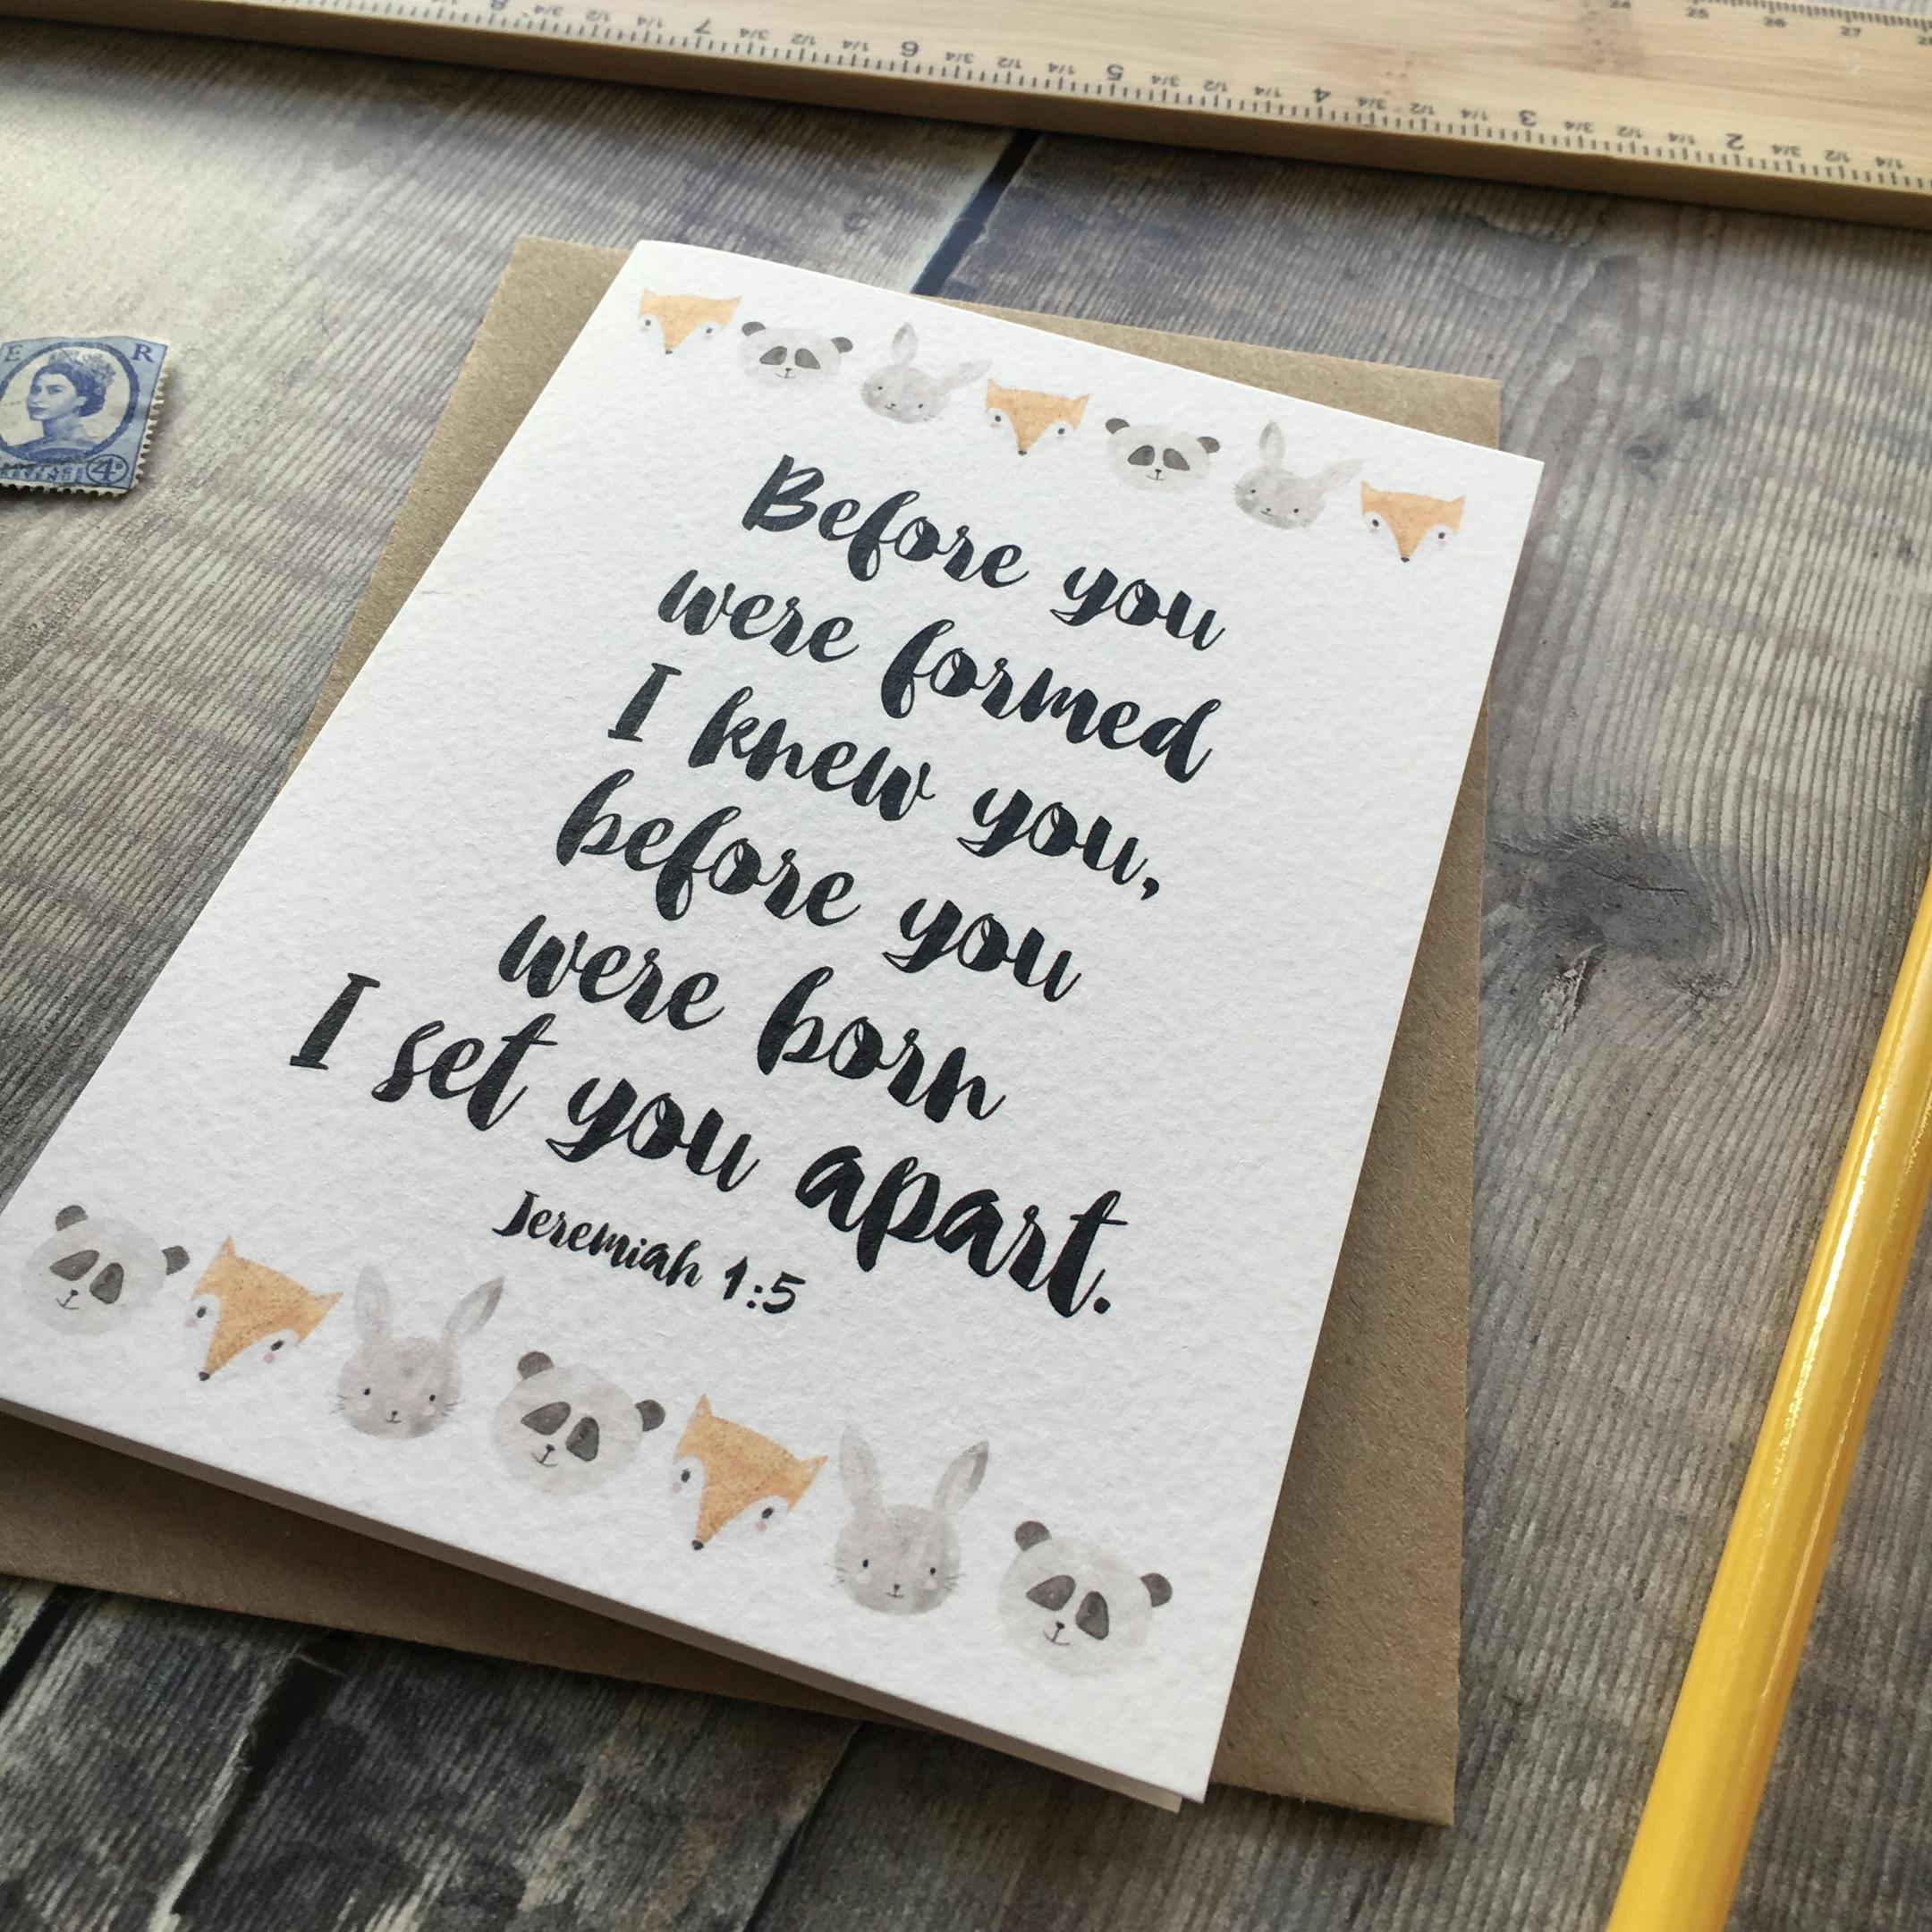 8 3/4 1/2 1/4 7 3/4 1/2 1/4 6 3/4 1/2 1/4 5 3/4 1/2 1/4 4 3/4 1/2 1/4 3 3/4 1/2 1/4 2 3/4 1/2 1/4
24 25 26 27
E R
4D
Before you
were formed
I knew you,
before you
were born
I set you apart.
Jeremiah 1:5